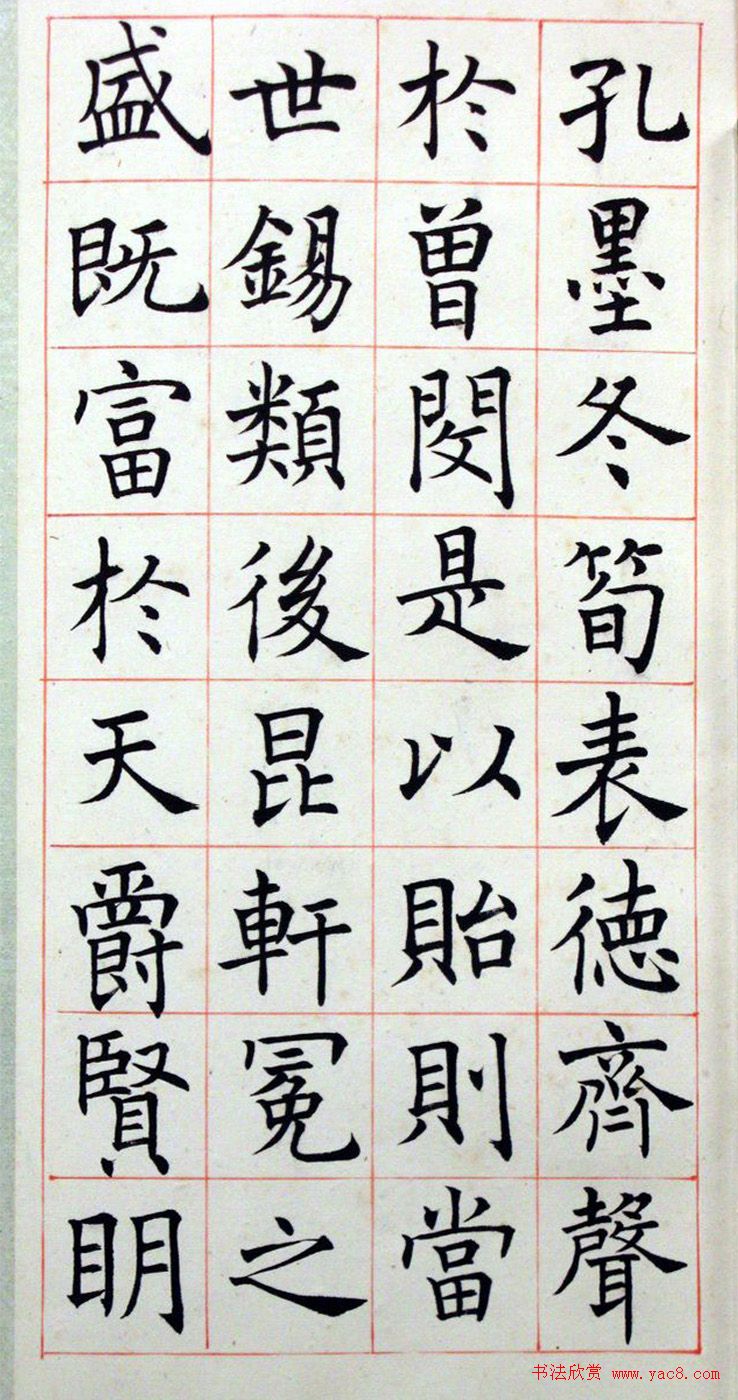 孔墨冬筍表德齊聲
於曾閔是以貽則當
世錫類後昆軒冕之
盛既富於天爵賢明
书法欣赏 www.yac8.com